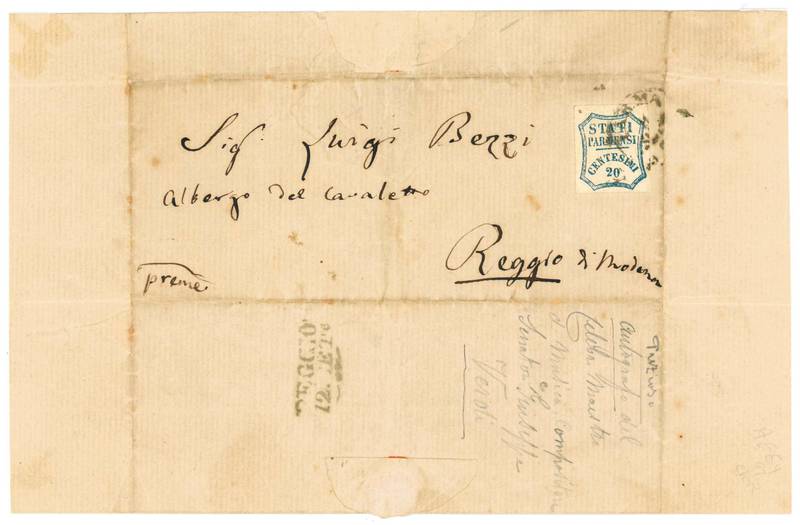 Sigr. Luigi Bezzi
Albergo del Cavaletto
Reggio di Modena
preme
STATI
PARMENSI
CENTESIMI
20
REGGIO
autografo del
celebre Maestro
di Musica Compositore
Senatore Giuseppe
Verdi